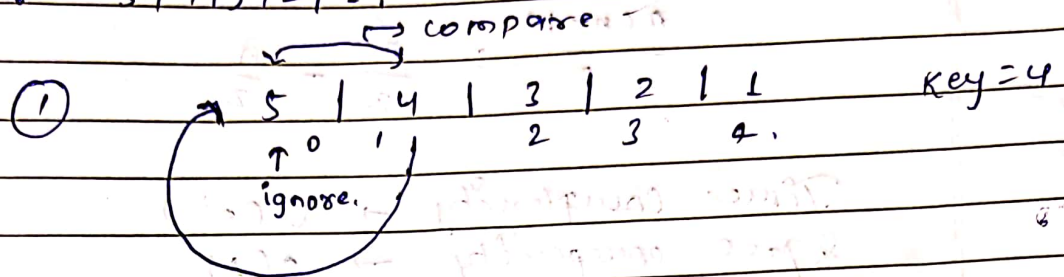 → compare
① 5 | 4 | 3 | 2 | 1 Key = 4
0 1 2 3 4.
↑
ignore.